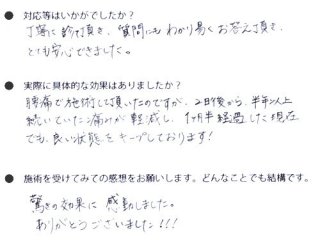 ● 対応等はいかがでしたか？
丁寧に診て頂き、質問にもわかり易くお答え頂き、
とても安心できました。
● 実際に具体的な効果はありましたか？
腰痛で施術して頂いたのですが、2日後から、半年以上
続いていた痛みが軽減し、1ヶ月半経過した現在
でも、良い状態をキープしております!
● 施術を受けてみての感想をお願いします。どんなことでも結構です。
驚きの効果に感動しました。
ありがとうございました!!!